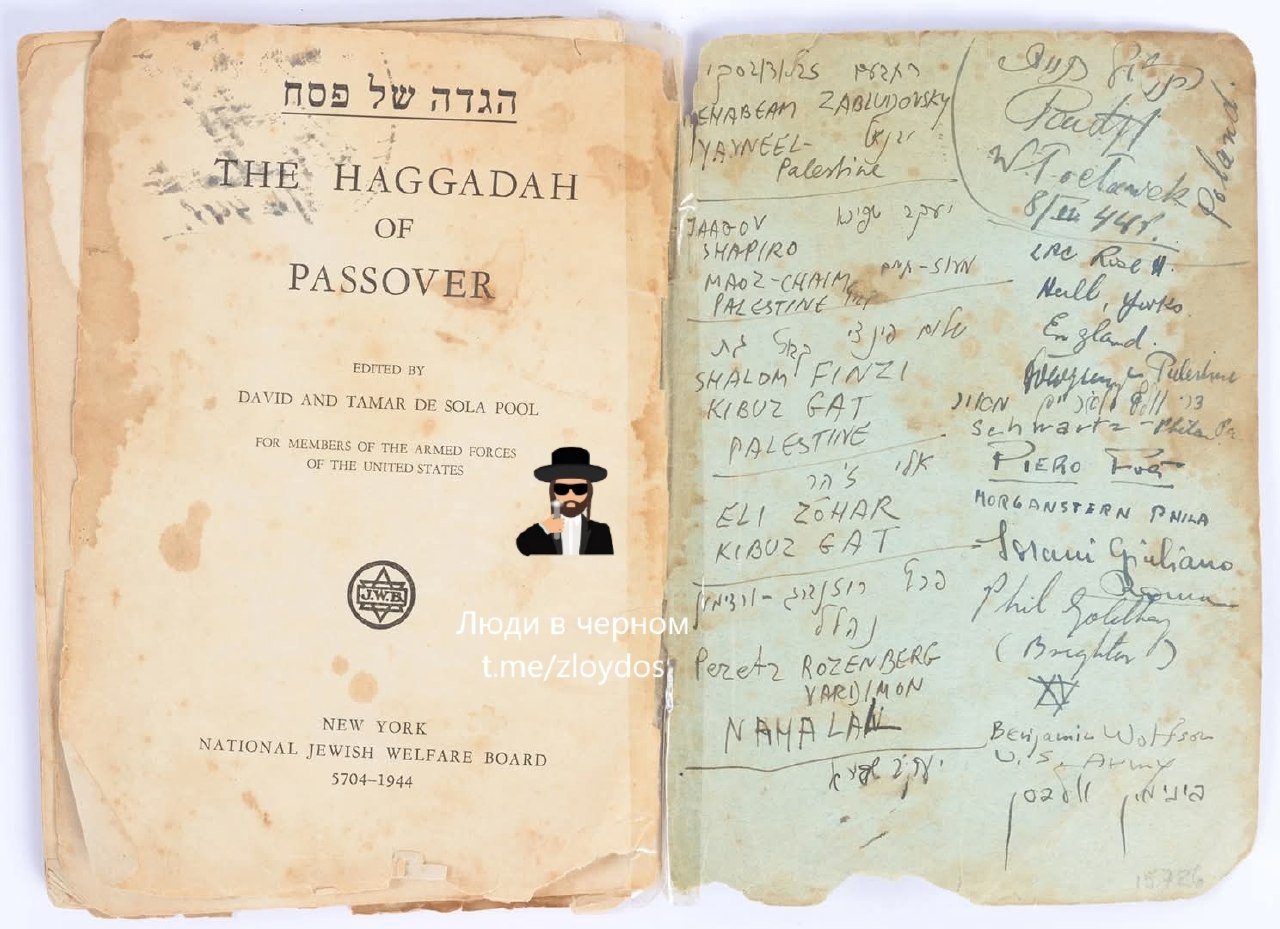 הגדה של פסח
THE HAGGADAH
OF
PASSOVER
EDITED BY
DAVID AND TAMAR DE SOLA POOL
FOR MEMBERS OF THE ARMED FORCES
OF THE UNITED STATES
J.W.B.
NEW YORK
NATIONAL JEWISH WELFARE BOARD
5704–1944
Люди в черном
t.me/zloydos
רחבעם זבלודובסקי
EHABEAM ZABLUDOVSKY
יבנאל
YAVNEEL-
Palestine
יעקב שפירא
JAAQOV
SHAPIRO
מעוז-חיים
MAOZ-CHAIM
PALESTINE
שלום פינצי קבוץ גת
SHALOM FINZI
KIBUZ GAT
PALESTINE
אלי זהר
ELI ZOHAR
KIBUZ GAT
פרץ רוזנברג-ורדימון
נהלל
Peretz ROZENBERG
VARDIMON
NAHALAL
יעקב שפירא
Poland.
LAC Rose H.
Hull, Yorks.
England.
Palestine
Schwartz - Phila Pa
PIERO
MORGANSTERN PHILA
Giuliano
Roma
Phil
(Brighton)
Benjamin Wolfson
U.S. Army
בינימין
15726